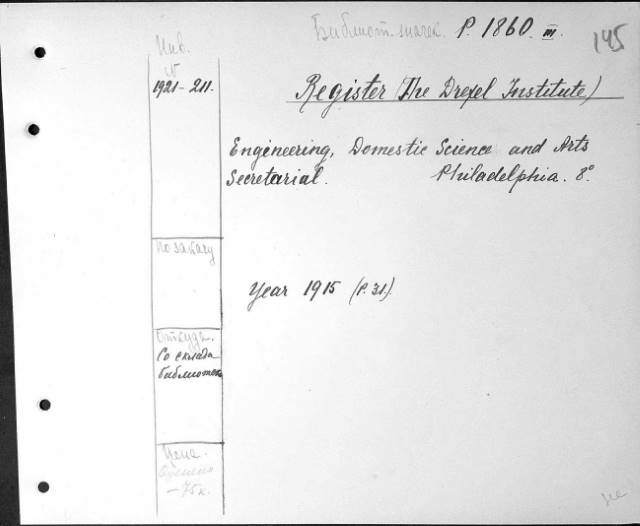 Библиот. значек. P. 1860. III.
145
Инв.
№
1921-211.
Register (The Drexel Institute)
Engineering, Domestic Science and Arts
Secretarial. Philadelphia. 8°.
по заказу
Year 1915 (P. 31).
Откуда.
Со склада
библиотеки
Цена.
— 75 к.